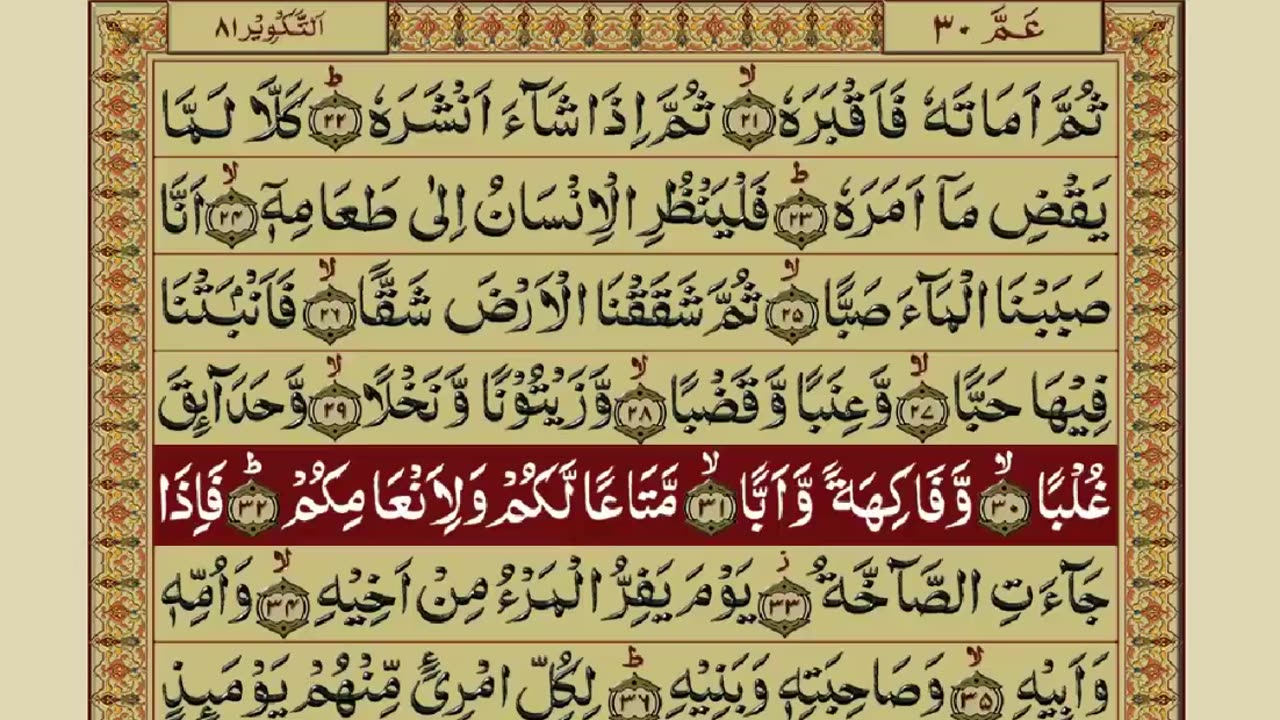 عَمَّ ٣٠
اَلتَّكْوِيْر ٨١
ثُمَّ اَمَاتَهٗ فَاَقْبَرَهٗ ۙ‏﴿۲۱﴾ ثُمَّ اِذَا شَآءَ اَنْشَرَهٗ ؕ‏﴿۲۲﴾ كَلَّا لَمَّا
يَقْضِ مَآ اَمَرَهٗ ؕ‏﴿۲۳﴾ فَلْيَنْظُرِ الْاِنْسَانُ اِلٰى طَعَامِهٖۤ ۙ‏﴿۲۴﴾ اَنَّا
صَبَبْنَا الْمَآءَ صَبًّا ۙ‏﴿۲۵﴾ ثُمَّ شَقَقْنَا الْاَرْضَ شَقًّا ۙ‏﴿۲۶﴾ فَاَنْۢبَتْنَا
فِيْهَا حَبًّا ۙ‏﴿۲۷﴾ وَّ عِنَبًا وَّ قَضْبًا ۙ‏﴿۲۸﴾ وَّ زَيْتُوْنًا وَّ نَخْلًا ۙ‏﴿۲۹﴾ وَّ حَدَآئِقَ
غُلْبًا ۙ‏﴿۳۰﴾ وَّ فَاكِهَةً وَّ اَبًّا ۙ‏﴿۳۱﴾ مَّتَاعًا لَّكُمْ وَلِاَنْعَامِكُمْ ؕ‏﴿۳۲﴾ فَاِذَا
جَآءَتِ الصَّآخَّةُ ز‏﴿۳۳﴾ يَوْمَ يَفِرُّ الْمَرْءُ مِنْ اَخِيْهِ ۙ‏﴿۳۴﴾ وَاُمِّهٖ
وَاَبِيْهِ ۙ‏﴿۳۵﴾ وَصَاحِبَتِهٖ وَبَنِيْهِ ؕ‏﴿۳۶﴾ لِكُلِّ امْرِئٍ مِّنْهُمْ يَوْمَئِذٍ